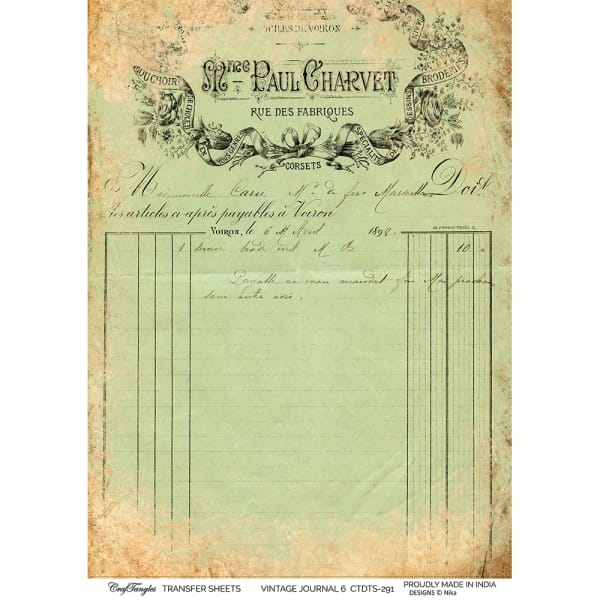 TOILES DE VOIRON
Mme PAUL CHARVET
MOUCHOIRS
BRODERIES
RUE DES FABRIQUES
DE CHOLET
DESSINS
SPÉCIALITÉ
CORSETS
Mademoiselle Carre Md de fer Marseille Doit
les articles ci-après payables à Voiron
VOIRON, le 6 Avril 1892.
1 brodé M B 10
Payable en mon mandat fin Mai prochain
sans autre avis.
CrafTangles TRANSFER SHEETS VINTAGE JOURNAL 6 CTDTS-291 PROUDLY MADE IN INDIA
DESIGNS © Nika